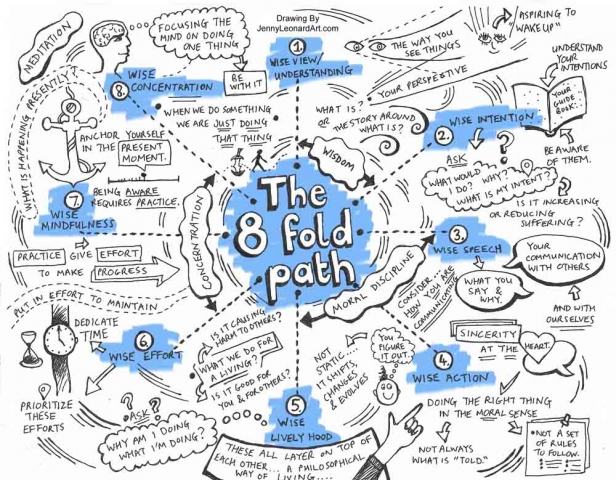 Drawing By
JennyLeonardArt.com
The
8 fold
path
WISDOM
MORAL DISCIPLINE
CONCENTRATION
1.
WISE VIEW/
UNDERSTANDING
THE WAY YOU
SEE THINGS
YOUR PERSPECTIVE
"ASPIRING TO
WAKE UP"
WHAT IS?
OR
THE STORY AROUND
WHAT IS?
2.
WISE INTENTION
UNDERSTAND
YOUR
INTENTIONS
YOUR
GUIDE
BOOK..
BE AWARE
OF THEM.
ASK
?
WHAT WOULD
I DO? WHY?
WHAT IS MY INTENT?
IS IT INCREASING
OR REDUCING
SUFFERING?
3.
WISE SPEECH
YOUR
COMMUNICATION
WITH OTHERS
WHAT YOU
SAY &
WHY.
AND WITH
OURSELVES
CONSIDER
HOW YOU ARE
COMMUNICATING
SINCERITY
AT THE HEART.
4.
WISE ACTION
DOING THE RIGHT THING
IN THE MORAL SENSE
NOT ALWAYS
WHAT IS "TOLD."
•NOT A SET
OF RULES
TO FOLLOW.
YOU
FIGURE
IT OUT..
NOT
STATIC...
IT SHIFTS,
CHANGES
& EVOLVES
5.
WISE
LIVELY HOOD
IS IT CAUSING
HARM TO OTHERS?
WHAT WE DO FOR
A LIVING?
IS IT GOOD FOR
YOU & FOR OTHERS?
THESE ALL LAYER ON TOP OF
EACH OTHER... A PHILOSOPHICAL
WAY OF LIVING....
6.
WISE EFFORT
DEDICATE
TIME
PRIORITIZE
THESE
EFFORTS
? ASK ?
WHY AM I DOING
WHAT I'M DOING?
PUT IN EFFORT TO MAINTAIN
PRACTICE GIVE EFFORT
TO MAKE PROGRESS
7.
WISE
MINDFULNESS
WHAT IS HAPPENING PRESENTLY?
ANCHOR YOURSELF
IN THE PRESENT
MOMENT.
BEING AWARE
REQUIRES PRACTICE.
8.
WISE
CONCENTRATION
MEDITATION
FOCUSING THE
MIND ON DOING
ONE THING
BE
WITH IT
WHEN WE DO SOMETHING
WE ARE JUST DOING
THAT THING